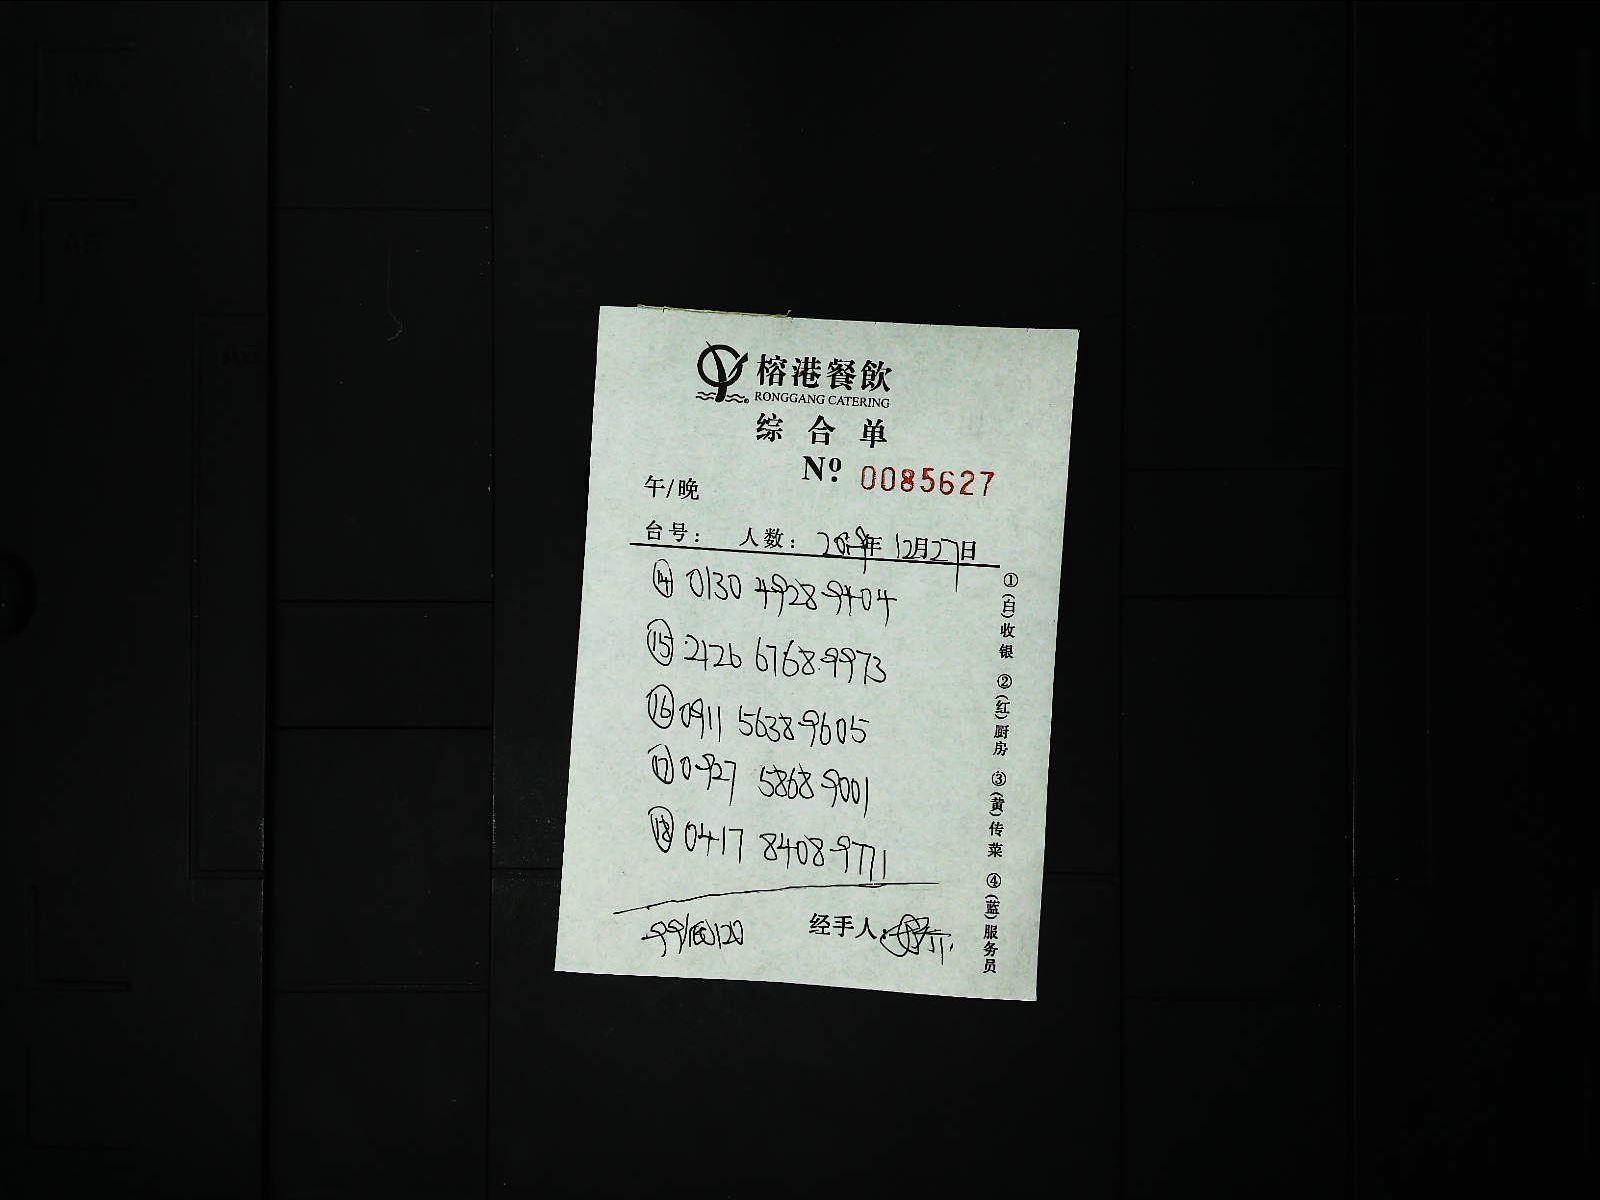 榕港餐飲
RONGGANG CATERING
综合单
Nº 0085627
午/晚
台号： 人数： 年12月27日
⑭ 0130 4928 9404
⑮ 2126 6768 9973
⑯ 0911 5638 9605
⑰ 0927 5868 9001
⑱ 0417 8408 9771
经手人：
①(白)收银 ②(红)厨房 ③(黄)传菜 ④(蓝)服务员